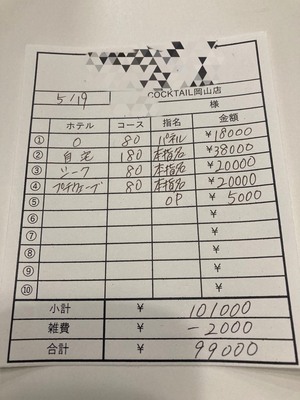 COCKTAIL岡山店
5/19 様
ホテル コース 指名 金額
① O 80 パネル ¥18000
② 自宅 180 本指名 ¥38000
③ シーク 80 本指名 ¥20000
④ 80 本指名 ¥20000
⑤ OP ¥5000
⑥ ¥
⑦ ¥
⑧ ¥
⑨ ¥
⑩ ¥
小計 ¥ 101000
雑費 ¥ -2000
合計 ¥ 99000